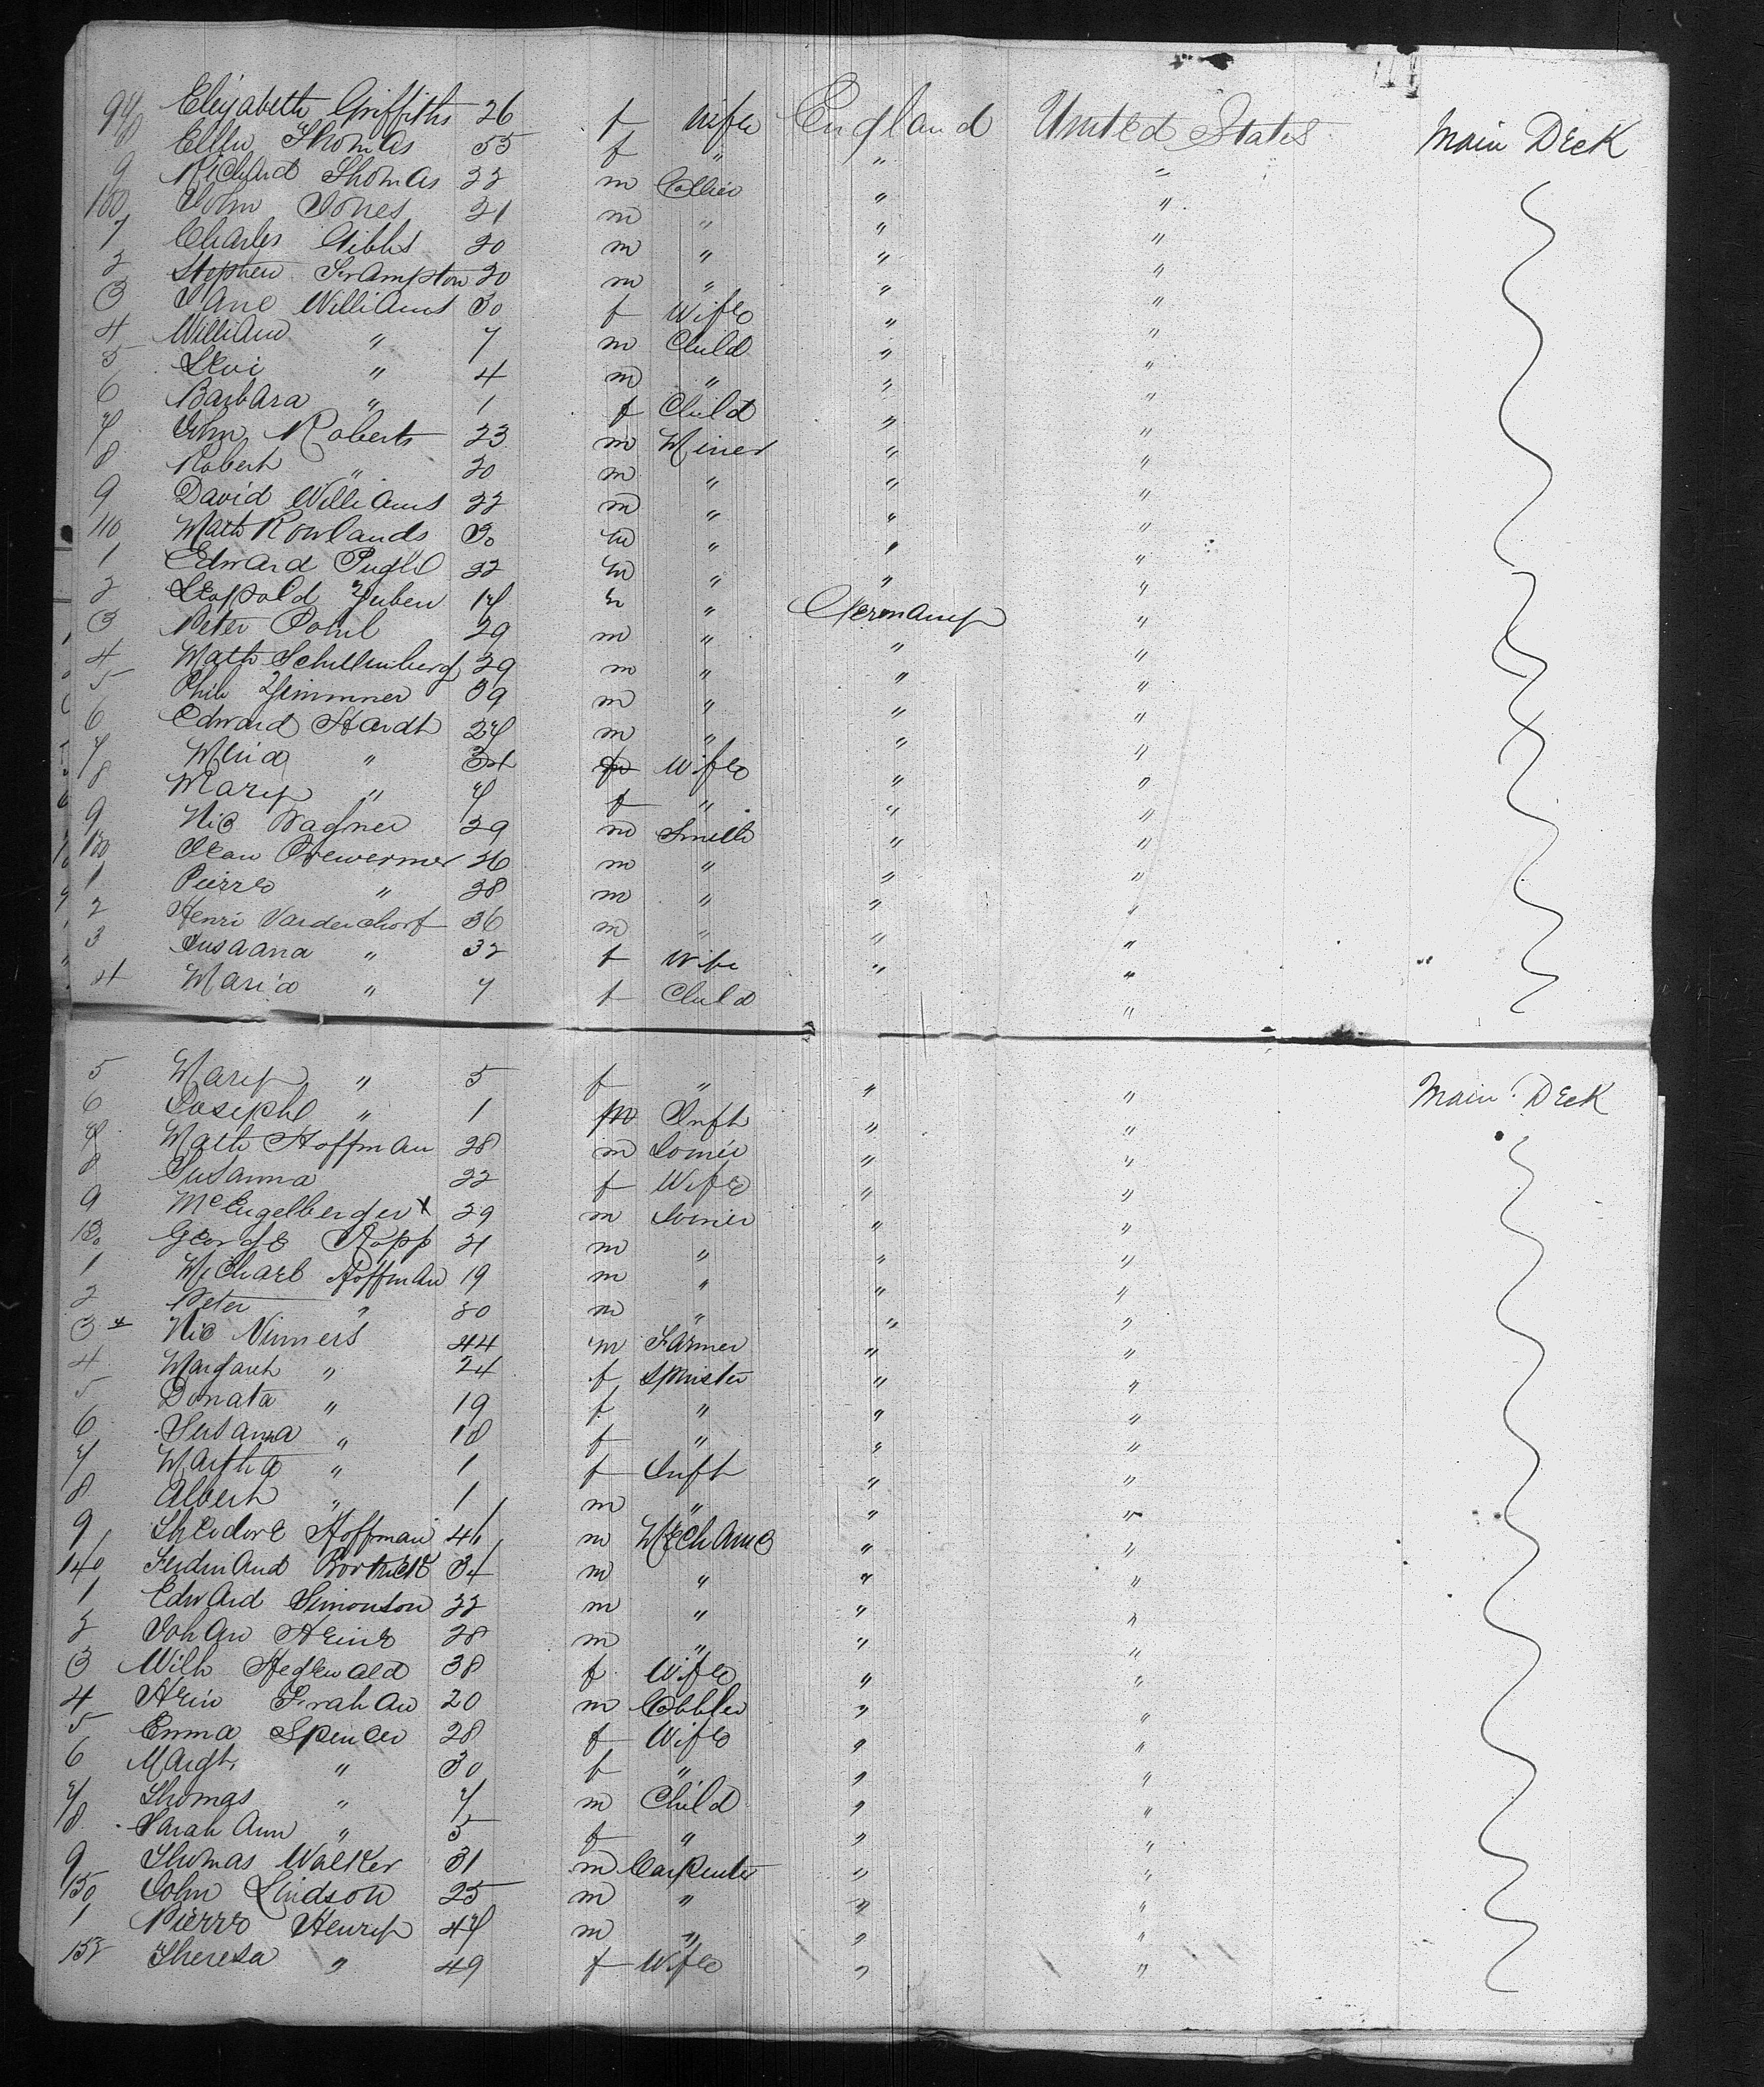 9 Elizabeth Griffiths 26 f Wife England United States Main Deck
Ellen Thomas 55 f " " "
9 Richard Thomas 22 m Collier " "
100 John Jones 21 m " " "
1 Charles Gibbs 20 m " " "
2 Stephen Frampton 20 m " " "
3 Jane Williams 30 f Wife " "
4 William " 7 m Child " "
5 Levi " 4 m " " "
6 Barbara " 1 f Child " "
7 John Roberts 23 m Miner " "
8 Robert " 20 m " " "
9 David Williams 22 m " " "
110 Math Rowlands 30 m " " "
1 Edward Pughe 22 m " " "
2 Leopold 17 m " Germany "
3 Peter 29 m " " "
4 Math Schellenberg 29 m " " "
5 Phil Zimmner 39 m " " "
6 Edward Hardt 27 m " " "
7 " f Wife " "
8 Mary " 7 f " " "
9 Nic Wagner 29 m Smith " "
120 Jean 26 m " " "
1 Pierre " 28 m " " "
2 Henri 36 m " " "
3 Susaana " 32 f Wife " "
4 Maria " 7 f Child "
5 Mary " 5 f " " " Main Deck
6 Joseph " 1 m Inft " "
7 Math Hoffman 28 m " "
8 Susanna 22 f Wife " "
9 Mc Engelberger x 29 m " "
130 George Ropp 21 m " " "
1 Michael Hoffman 19 m " " "
2 Peter " m " " "
3 Nic Nimmers 44 m Farmer " "
4 Margareth " 24 f Spinster " "
5 Donata " 19 f " " "
6 Susanna " 18 f " " "
7 Martha " 1 f Inft " "
8 Albert " 1 m " " "
9 Theodore Hoffman m Mechanic " "
140 Ferdinand 34 m " " "
1 Edward Simonson 22 m " " "
2 Johan 28 m " " "
3 Wilh Hegewald 38 f Wife " "
4 20 m Cobbler " "
5 Emma Spencer 28 f Wife " "
6 Margt. " 30 f " " "
7 Thomas " 7 m Child " "
8 Sarah Ann " 5 f " " "
9 Thomas Walker 31 m Carpenter " "
150 John Lindson 25 m " " "
1 Pierre Henry 47 m " " "
152 Theresa " 49 f Wife " "